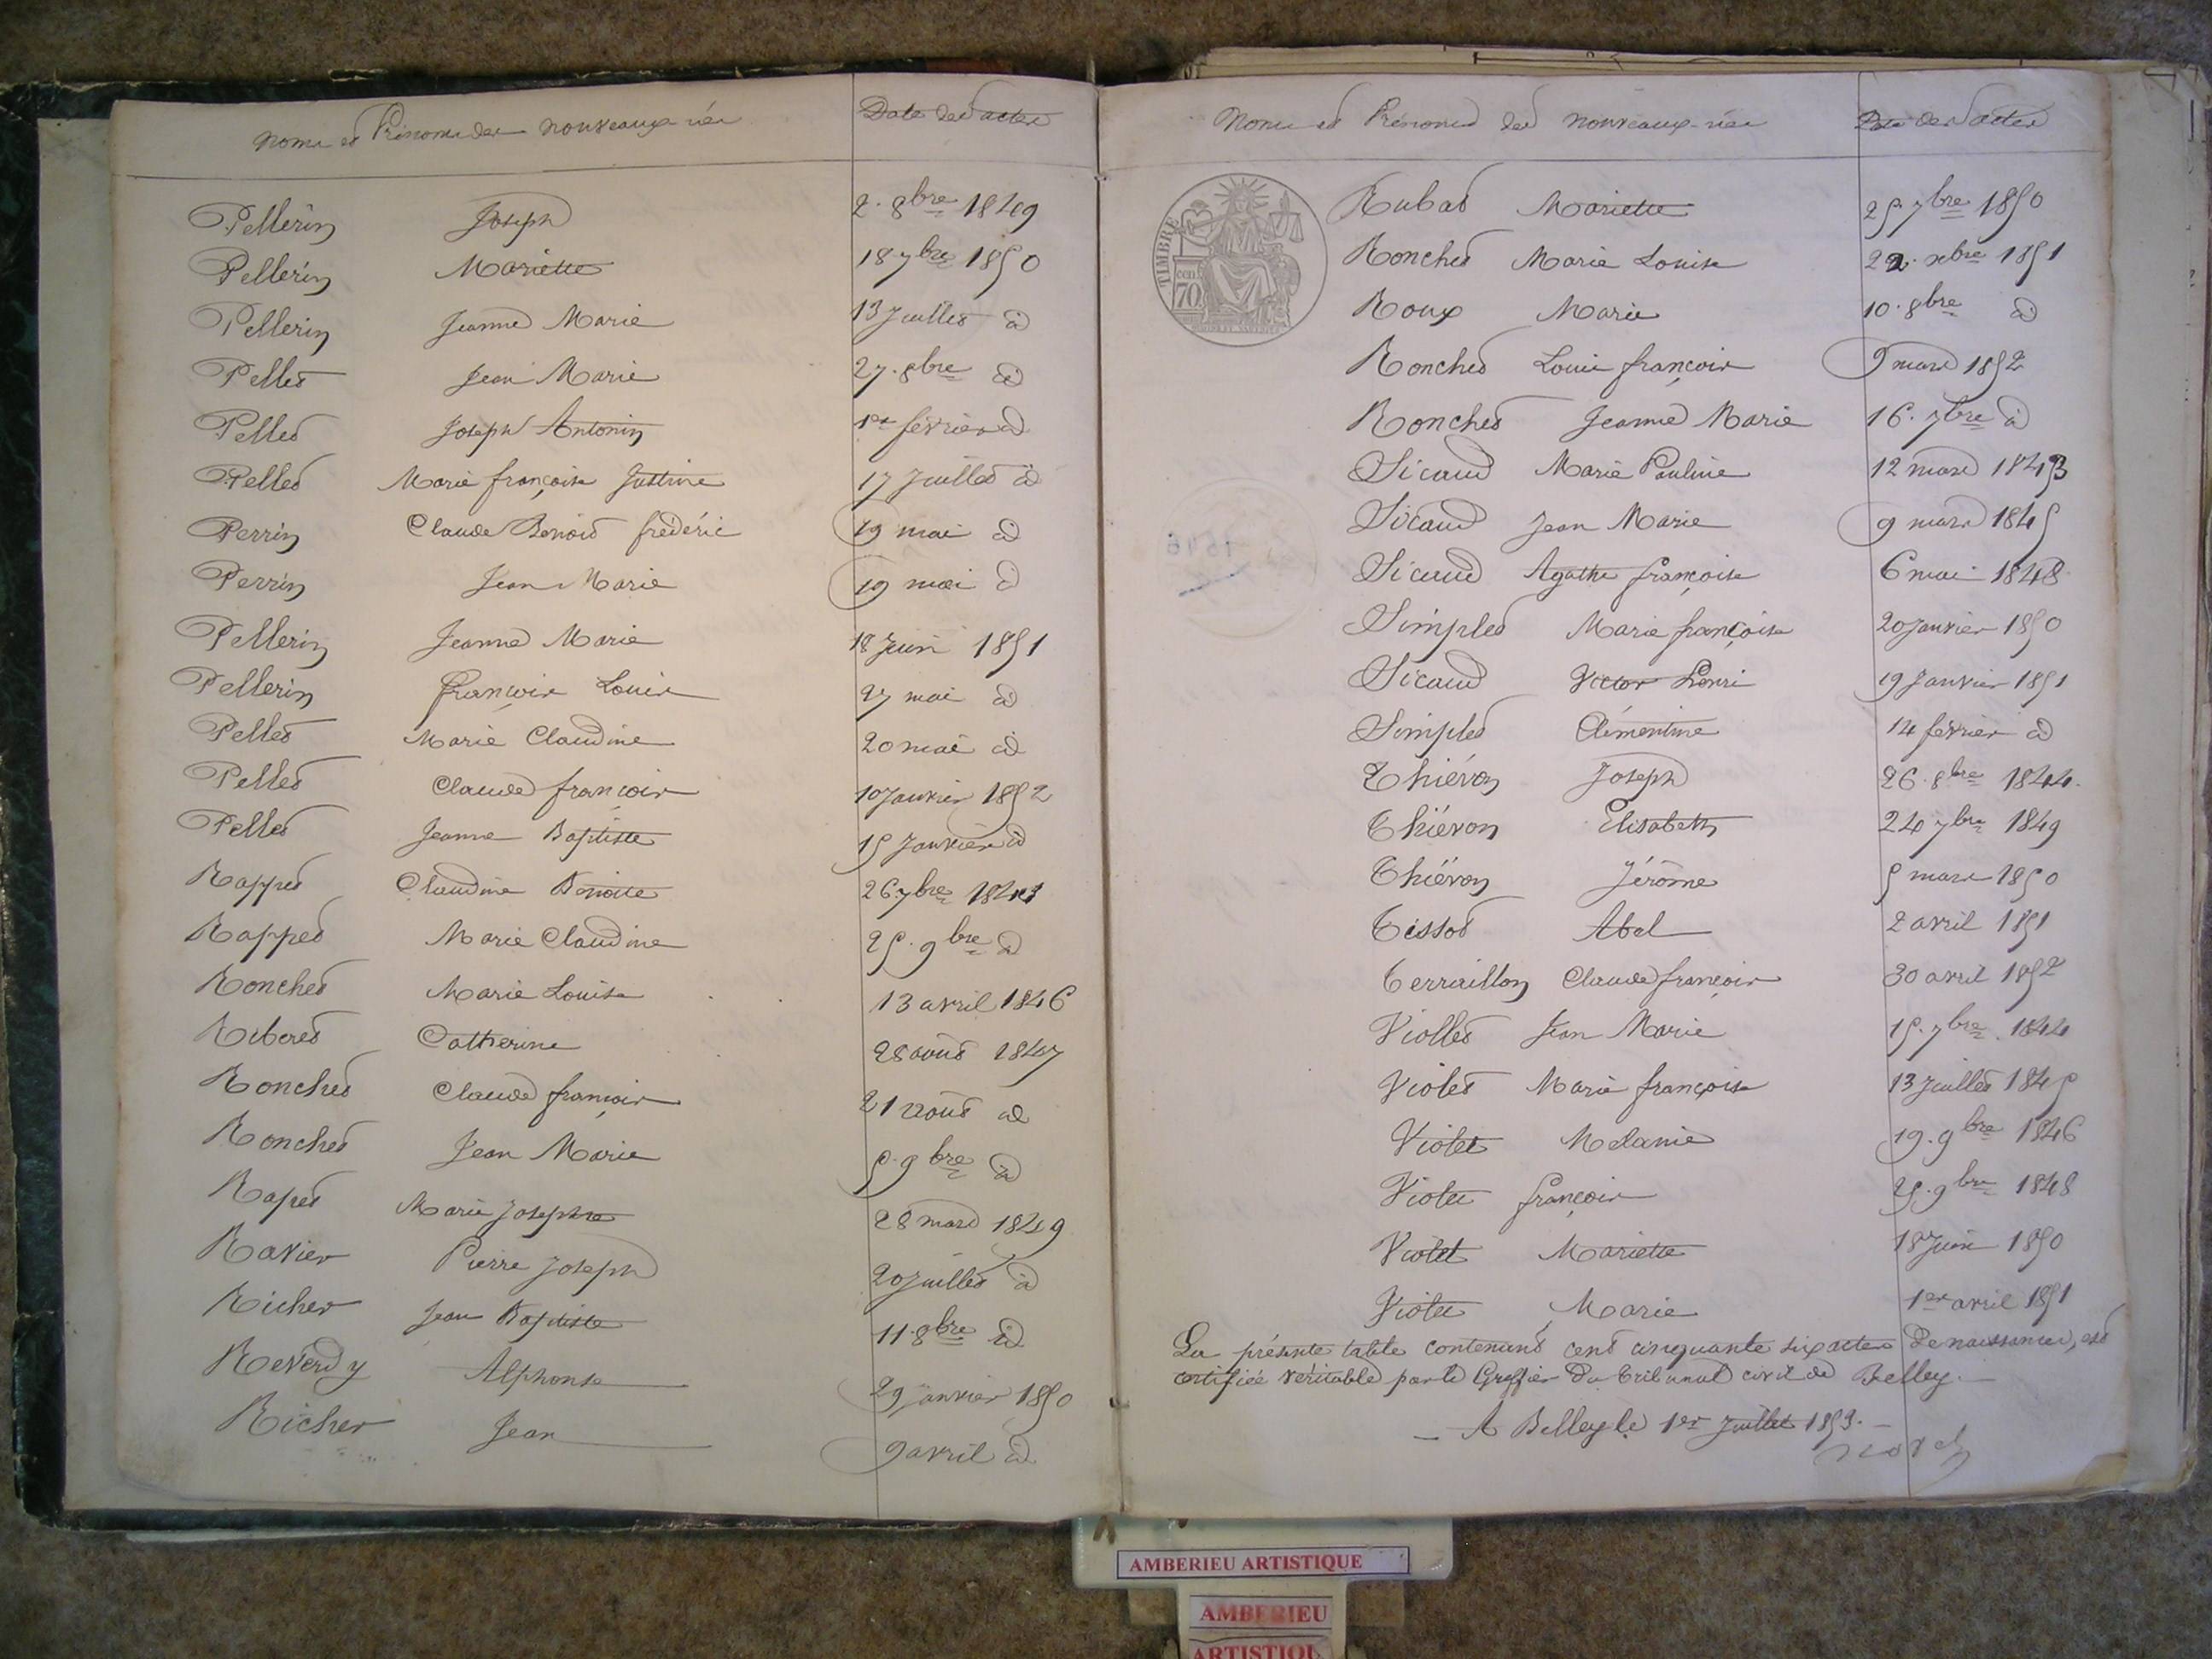 Noms et Prénoms des nouveaux-nés Date des actes
Pellerin Joseph 2. 8bre 1849
Pellerin Mariette 18 7bre 1850
Pellerin Jeanne Marie 13 Juillet id
Pellet Jean Marie 27. 8bre id
Pellet Joseph Antonin 1er février id
Pellet Marie françoise Justine 17 Juillet id
Perrin Claude Benoit frédéric 19 mai id
Perrin Jean Marie 19 mai id
Pellerin Jeanne Marie 18 Juin 1851
Pellerin françois Louis 27 mai id
Pellet Marie Claudine 20 mai id
Pellet Claude françois 10 Janvier 1852
Pellet Jeanne Baptiste 15 Janvier id
Rappet Claudine Benoite 26 7bre
Rappet Marie Claudine 25. 9bre id
Ronchet Marie Louise 13 avril 1846
Riberet Catherine 28 août 1847
Ronchet Claude françois 21 août id
Ronchet Jean Marie 5. 9bre id
Rapet Marie Josephte 28 mars 1849
Ravier Pierre Joseph 20 Juillet id
Richer Jean Baptiste 11. 8bre id
Reverdy Alphonse 29 janvier 1850
Richer Jean 9 avril id
Noms et Prénoms des nouveaux-nés Date des actes
TIMBRE
70
Rubat Mariette 25 7bre 1850
Ronchet Marie Louise 22. xbre 1851
Roux Marie 10. 8bre id
Ronchet Louis françois 9 mars 1852
Ronchet Jeanne Marie 16. 7bre id
Sicaud Marie Pauline 12 mars 1843
Sicaud Jean Marie 9 mars 1845
Sicaud Agathe françoise 6 mai 1848
Simplet Marie françoise 20 Janvier 1850
Sicaud Victor Henri 19 Janvier 1851
Simplet Clémentine 14 février id
Thiévon Joseph 26. 8bre 1844.
Thiévon Elisabeth 24 7bre 1849
Thiévon Jérôme 5 mars 1850
Tissot Abel 2 avril 1851
Terraillon Claude françois 30 avril 1852
Viollet Jean Marie 15. 7bre. 1844
Violet Marie françoise 13 Juillet 1845
Violet Melanie 19. 9bre 1846
Violet françois 25. 9bre 1848
Violet Mariette 18 Juin 1850
Violet Marie 1er avril 1851
La présente table contenant cent cinquante six actes de naissances, est
certifiée véritable par le Greffier du tribunal civil de Belley.
A Belley le 1er Juillet 1853.
AMBERIEU ARTISTIQUE
AMBERIEU